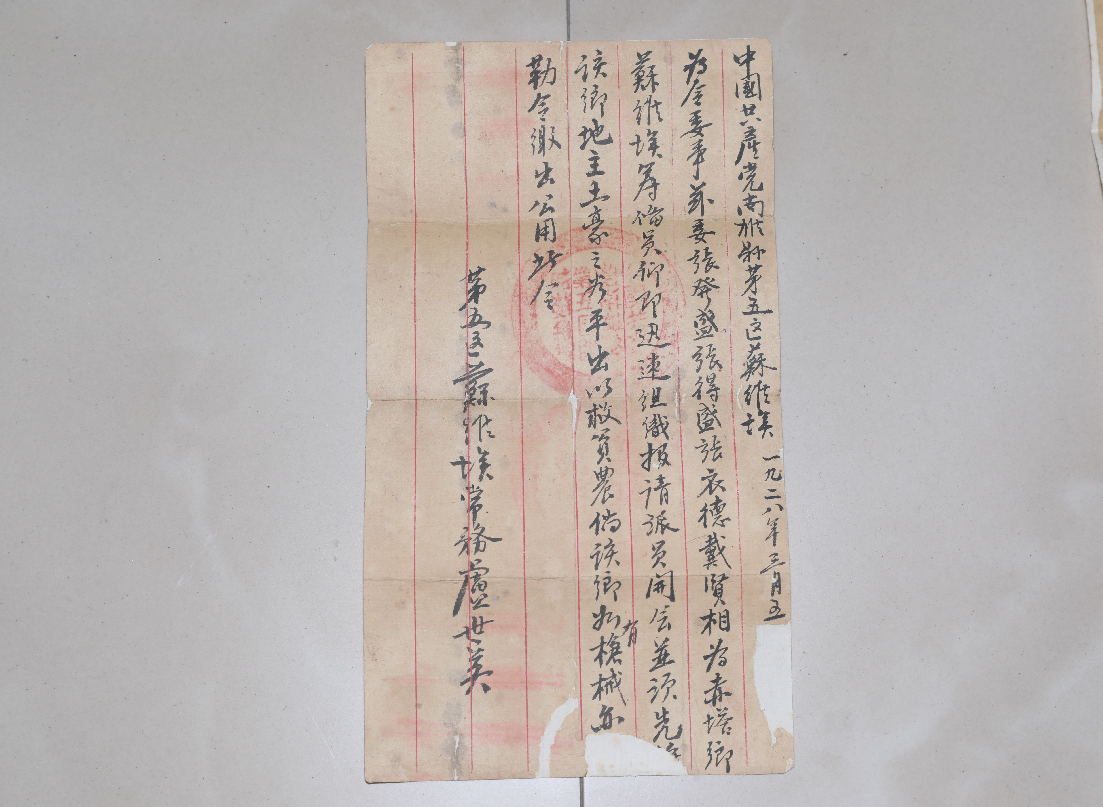 中國共產党南雄縣苐五区蘇維埃 一九二八年三月五
为令委事茲委張發盛張得盛張衣德戴賢相为赤塔鄉
蘇維埃筹備员仰即迅速组織报請派员開会並须先
该鄉地主土豪之谷平出以救貧農倘该鄉如有槍械亦
勒令繳出公用此令
苐五区蘇維埃常務盧世英